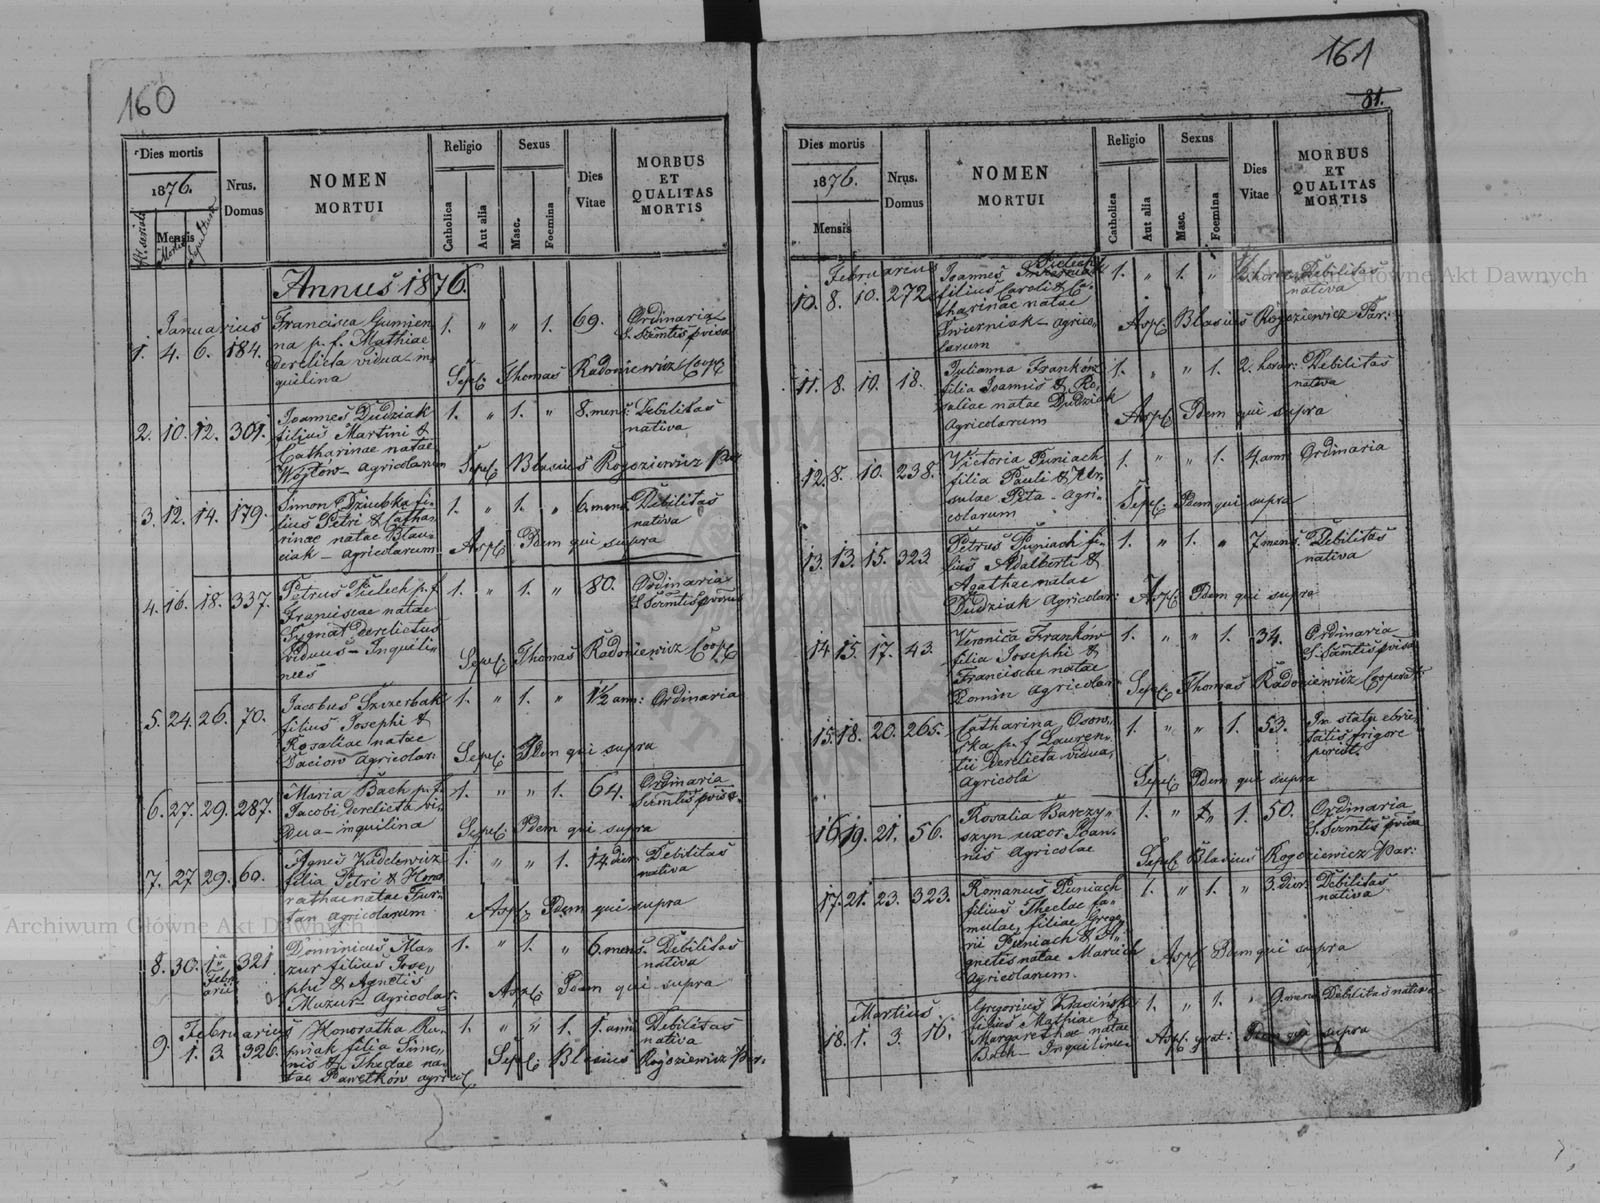 160
Dies mortis
1876.
Nrus.
Domus
NOMEN
MORTUI
Religio
Catholica
Aut alia
Sexus
Masc.
Foemina
Dies
Vitae
MORBUS
ET
QUALITAS
MORTIS
Mensis
Mortis
Sepulturae
Annus 1876.
Januarius
1. 4. 6. 184.
Francisca Gumien
na p. f. Mathiae
derelicta vidua in
quilina
1. " " 1. 69.
Ordinaria
S. Szmtis provisa
Sepel: Thomas Radoniewicz Coop
2. 10. 12. 301.
Joannes Dudziak
filius Martini &
Catharinae natae
Wojtów - Agricolarum
1. " 1. " 8. mens: Debilitas
nativa
Sepel: Blasius Rogoziewicz Par
3. 12. 14. 179.
Simon Dziubka fi-
lius Petri & Catha-
rinae natae Blau-
ciak - agricolarum
1. " 1. " 6. mens: Debilitas
nativa
Asp: Idem qui supra
4. 16. 18. 337.
Petrus Pielech p. f.
Franciscae natae
Sygnat derelictus
viduus - Inquili-
nus
1. " 1. " 80. Ordinaria
S. Szmtis provisus
Sepel: Thomas Radoniewicz Coop
5. 24. 26. 70.
Jacobus Szczerbak
filius Josephi &
Rosaliae natae
Daciow Agricolar:
1. " 1. " 1½ ann: Ordinaria
Sepel: Idem qui supra
6. 27. 29. 287.
Maria Bach p. f.
Jacobi derelicta vi-
dua - inquilina
1. " " 1. 64. Ordinaria
Szmtis provisa
Sepel: Idem qui supra
7. 27 29. 60.
Agnes Kudelewicz
filia Petri & Hono
rathae natae Fur-
tan agricolarum
1. " " 1. 14. dier: Debilitas
nativa
Asp: Idem qui supra
8. 30. 1a 321
Febru
arii
Dominicus Ma-
zur filius Jose-
phi & Agnetis
Mazur - Agricolar.
1. " 1. " 6. mens. Debilitas
nativa
Asp: Idem qui supra
Februarius
9. 1. 3. 326.
Honoratha Pu-
niak filia Simo-
nis & Theclae na-
tae Pawełków agricol.
1. " " 1. 1. anni Debilitas
nativa
Sepel: Blasius Rogoziewicz Par.
161
81.
Dies mortis
1876.
Mensis
Nrus.
Domus
NOMEN
MORTUI
Religio
Catholica
Aut alia
Sexus
Masc.
Foemina
Dies
Vitae
MORBUS
ET
QUALITAS
MORTIS
Februarius
10. 8. 10. 272
Joannes Pielech
filius Caroli & Ca-
tharinae natae
Świerniak - agrico-
larum
1. " 1. " Debilitas
nativa
Asp: Blasius Rogoziewicz Par:
11. 8. 10. 18.
Julianna Franków
filia Joannis & Ro-
saliae natae Dudziak
Agricolarum
1. " " 1. 2. horar: Debilitas
nativa
Asp: Idem qui supra
12. 8. 10. 238.
Victoria Puniach
filia Pauli & Ur-
sulae Pita - agri-
colarum
1. " " 1. 4. ann: Ordinaria
Sepel: Idem qui supra
13. 13. 15. 323
Petrus Puniach fi-
lius Adalberti &
Agathae natae
Dudziak Agricolar:
1. " 1. " 7 mens. Debilitas
nativa
Asp: Idem qui supra
14 15. 17. 43.
Veronica Franków
filia Josephi &
Franciscae natae
Romin Agricolar:
1. " " 1. 34. Ordinaria
S. Szmtis provisa
Sepel: Thomas Radoniewicz Cooperator
15. 18. 20. 265.
Catharina Osow-
ska p. f. Lauren-
tii derelicta vidua,
Agricola
1. " " 1. 53. In statu ebrie-
tatis frigore
periit.
Sepel: Idem qui supra
16 19. 21. 56.
Rosalia Barczy-
szyn uxor Joan-
nis Agricolae
1. " " 1. 50. Ordinaria
S. Szmtis provisa
Sepel: Blasius Rogoziewicz Par:
17. 21. 23. 323.
Romanus Puniach
filius Theclae fa-
mulae, filiae Grego-
rii Puniach & A-
gnetis natae Marcich
Agricolarum.
1. " 1. " 3. dier: Debilitas
nativa
Asp: Idem qui supra
Martius
18. 1. 3. 16.
Gregorius Krasiński
filius Mathiae &
Margarethae natae
Bach - Inquilinor
1. " 1. " 9. mens. Debilitas nativa
Asp: grat: Idem qui supra
Archiwum Główne Akt Dawnych
Archiwum Główne Akt Dawnych